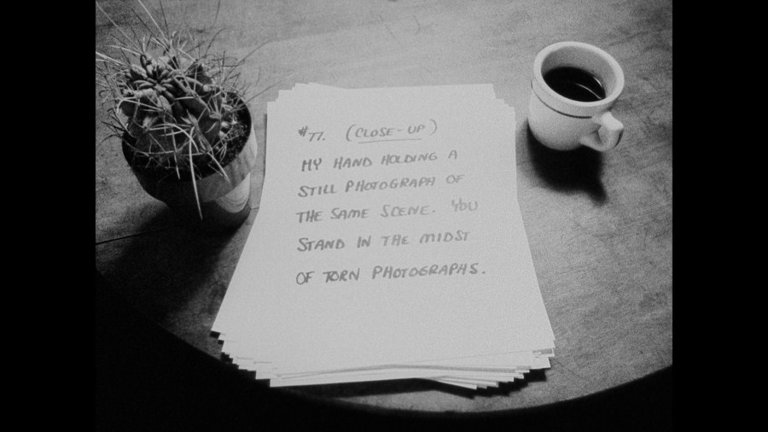 #77. (CLOSE-UP)
MY HAND HOLDING A
STILL PHOTOGRAPH OF
THE SAME SCENE. YOU
STAND IN THE MIDST
OF TORN PHOTOGRAPHS.